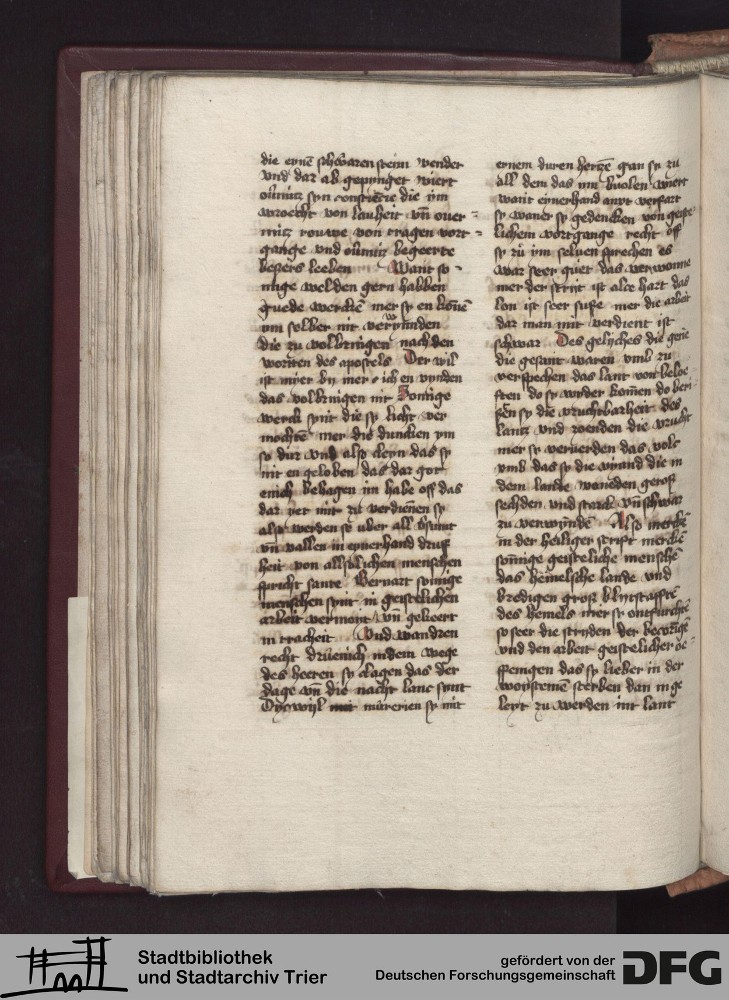 die eynē schwaren stein wender
vnd dar ab gepiniget wiert
oūmitz syn consciēcie die im
wroecht von lauheit vn̄ ouer
mitz rouwe von tragen vort
gange vnd oūmitz begeerte
bessers leeben Want so
mige welden gern habben
guede wercken mer sy en kōnē
ym selber nit verwinden
die zu volbringen nach den
worten des apostels Der wil
ist myer by mer ich en vynden
das volbringen nit Somige
werck synt die sy licht ver
mochtē mer die duncken ym
so dur vnd also cleyn das sy
nit en geloben das dar got
enich behagen im habe off das
dar yet mit zu verdienen sy
also werden sy uber all
vn̄ vallen in eynerhand druf
heit von allsolichen menschen
spricht sante Bernart somige
menschen synt in geistelichen
arbeit vermoyt vn̄ gekeert
in tracheit Vnd wandren
recht druenich in dem wege
des heeren sy clagen das der
dage vn̄ die nacht lanc synt
Dyswijl murerien sy mit
eynem duren hertzē gan sy zu
all dem das im beuolen wiert
want eynerhand anxt verfart
sy waner sy gedencken von geiste
lichem vortgange recht off
sy zu im seluen sprechen es
war seer guet das verwonne
mer der strijt ist alce hart das
lon ist seer suße mer die arbeit
dar man mit verdient ist
schwar Des gelijches die gene
die gesant waren vmb zu
verspechen das lant von beloe
ften do sy wyder komen do beri
sen sy die vruchtbarheit des
lantz vnd roenden die vrucht
mer sy veruerden das volc
vmb das sy die viand die in
dem lande woneden geroß
sechden vnd starck vn̄ schwar
zu verwynde Also mercke
in der heiliger scrift mercken
somige geisteliche menschē
das hemelsche lande vnd
bredigen groß blijtschafftē
des hemels mer sy ontfurchtē
so seer die stryden der becorige
vnd den arbeit geistelicher oe
ffeningen das sy lieber in der
woystenie sterben dan in ge
leyt zu werden int lant
Stadtbibliothek
und Stadtarchiv Trier
gefördert von der
Deutschen Forschungsgemeinschaft
DFG